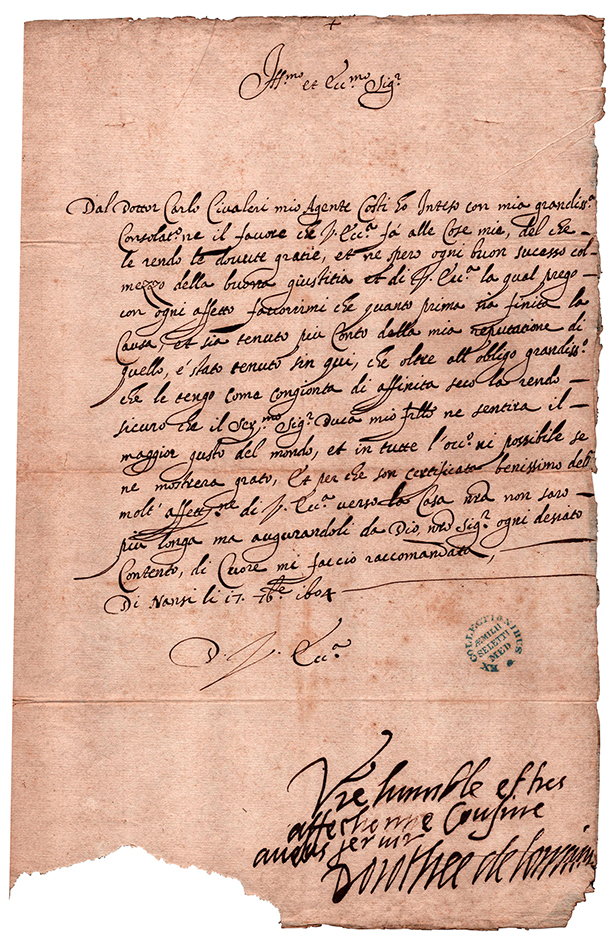 Ill.mo et Ecc.mo Sig.r
Dal Dottor Carlo Civaleri mio Agente Costi hò Inteso con mia grandiss.a
Consolat.ne il favore che V. Ecc.a fà alle Cose mie, del che
le rendo le dovute gratie, et ne spero ogni buon sucesso col
mezzo della buona giustitia et di V. Ecc.a la qual prego
con ogni affetto favorirmi che quanto prima sia finita la
Causa, et sia tenuto più Conto della mia reputatione di
quello, è stato tenuto sin quì, che oltre all' obligo grandiss.o
che le tengo come congionta di affinita seco la rendo
sicuro che il Ser.mo Sig.r Duca mio frllo ne sentira il
maggior gusto del mondo, et in tutte l'occ.ni possibile se
ne mostrera grato, Et per che son certificata benissimo
molt' affett.ne di V. Ecc.a verso la Casa nrã non sarò
più longa ma augurandoli da Dio, nrõ Sig.r ogni desiato
Contento, di Cuore mi faccio raccomandata,
Di Nansi li 17. 7bre 1604
D. V. Ecc.a
COLLECTIONIBUS
ÆMILII
SELETTI
MED
Vre humble et tres
affectionnee Cousine
a vous servir
Dorothee de Lorraine